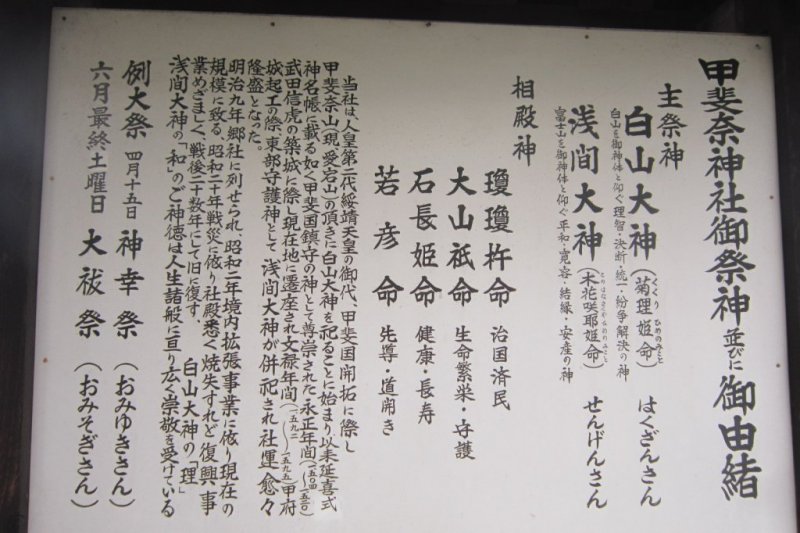 甲斐奈神社御祭神並びに御由緒
主祭神
白山大神(菊理姫命) はくざんさん
くくりひめのみこと
白山を御神体と仰ぐ理智・決断・統一・紛争解決の神
浅間大神(木花咲耶姫命) せんげんさん
このはなさくやひめのみこと
富士山を御神体と仰ぐ平和・寛容・結縁・安産の神
相殿神
瓊瓊杵命 治国済民
大山祇命 生命繁栄・守護
石長姫命 健康・長寿
若彦命 先導・道開き
当社は人皇第二代綏靖天皇の御代、甲斐国開拓に際し
甲斐奈山(現愛宕山)の頂きに白山大神を祀ることに始まり以来延喜式
神名帳に載る如く甲斐国鎮守の神として尊崇された永正年間(一五〇四〜一五二〇)
武田信虎の築城に際し現在地に遷座され文禄年間(一五九二〜一五九五)甲府
城起工の際、東部守護神として浅間大神が併祀され社運愈々
隆盛となった。
明治九年郷社に列せられ、昭和二年境内拡張事業に依り現在の
規模に致る、昭和二十年戦災に依り社殿悉く焼失すれど復興事
業めざましく、戦後二十数年にして旧に復す。 白山大神の「理」
浅間大神の「和」のご神徳は人生諸般に亘り広く崇敬を受けている
例大祭 四月十五日 神幸祭 (おみゆきさん)
六月最終土曜日 大祓祭 (おみそぎさん)